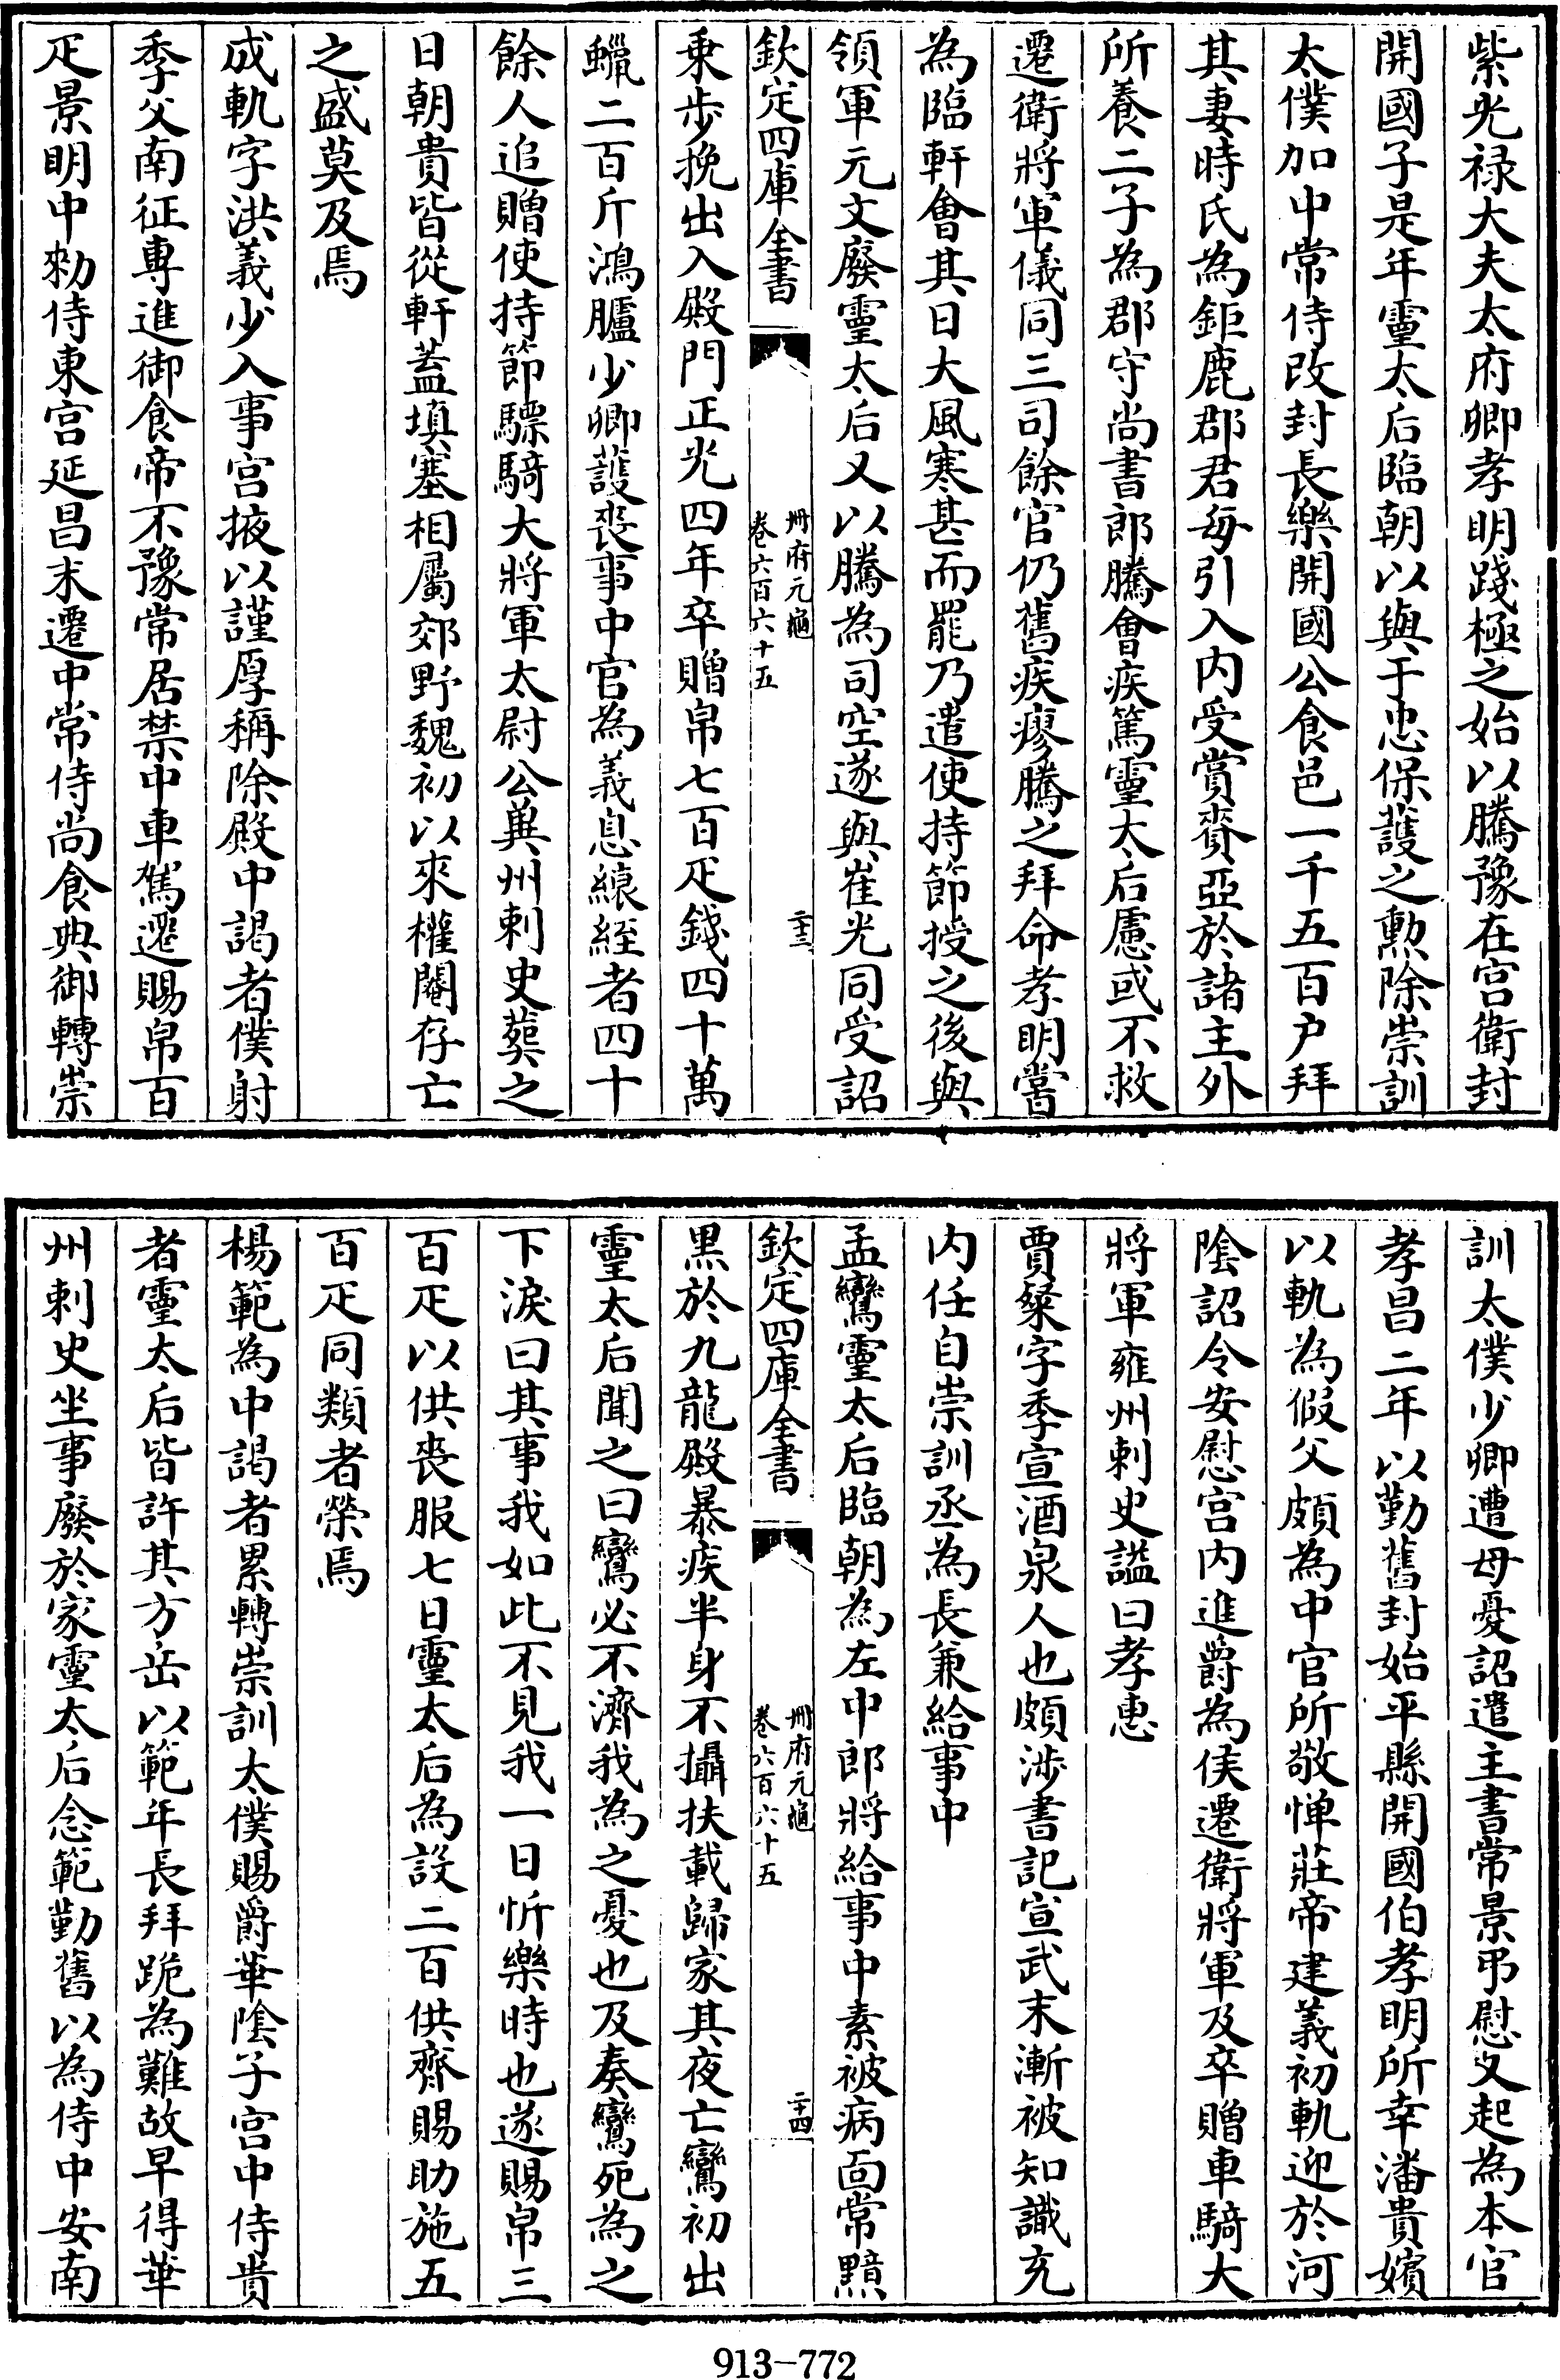 紫光禄大夫太府卿孝明踐極之始以騰豫在宫衛封
開國子是年靈太后臨朝以與于忠保護之勲除崇訓
太僕加中常侍改封長樂開國公食邑一千五百户拜
其妻時氏為鉅鹿郡君每引入内受賞賚亞於諸主外
所養二子為郡守尚書郎騰會疾篤靈太后慮或不救
遷衛將軍儀同三司餘官仍舊疾瘳騰之拜命孝明嘗
為臨軒會其日大風寒甚而罷乃遣使持節授之後與
領軍元文廢靈太后又以騰為司空遂與崔光同受詔
欽定四庫全書
冊府元龜
卷六百六十五
二十三
乗步挽出入殿門正光四年卒贈帛七百疋錢四十萬
蠟二百斤鴻臚少卿護丧事中官為義息縗絰者四十
餘人追贈使持節驃騎大將軍太尉公冀州刺史葬之
日朝貴皆從軒蓋填塞相屬郊野魏初以來權閹存亡
之盛莫及焉
成軌字洪義少入事宫掖以謹厚稱除殿中謁者僕射
季父南征專進御食帝不豫常居禁中車駕還賜帛百
疋景明中勑侍東宫延昌末遷中常侍尚食典御轉崇
訓太僕少卿遭母憂詔遣主書常景弔慰又起為本官
孝昌二年以勤舊封始平縣開國伯孝明所幸潘貴嬪
以軌為假父頗為中官所敬憚莊帝建義初軌迎於河
隂詔令安慰宫内進爵為侯遷衛將軍及卒贈車騎大
將軍雍州刺史謚曰孝惠
賈粲字季宣酒泉人也頗涉書記宣武末漸被知識充
内任自崇訓丞為長兼給事中
孟鸞靈太后臨朝為左中郎將給事中素被病面常黯
欽定四庫全書
冊府元龜
卷六百六十五
二十四
黒於九龍殿暴疾半身不攝扶載歸家其夜亡鸞初出
靈太后聞之曰鸞必不濟我為之憂也及奏鸞死為之
下淚曰其事我如此不見我一日忻樂時也遂賜帛三
百疋以供喪服七日靈太后為設二百供齋賜助施五
百疋同類者榮焉
楊範為中謁者累轉崇訓太僕賜爵華隂子宫中侍貴
者靈太后皆許其方岳以範年長拜跪為難故早得華
州刺史坐事廢於家靈太后念範勤舊以為侍中安南
913-772